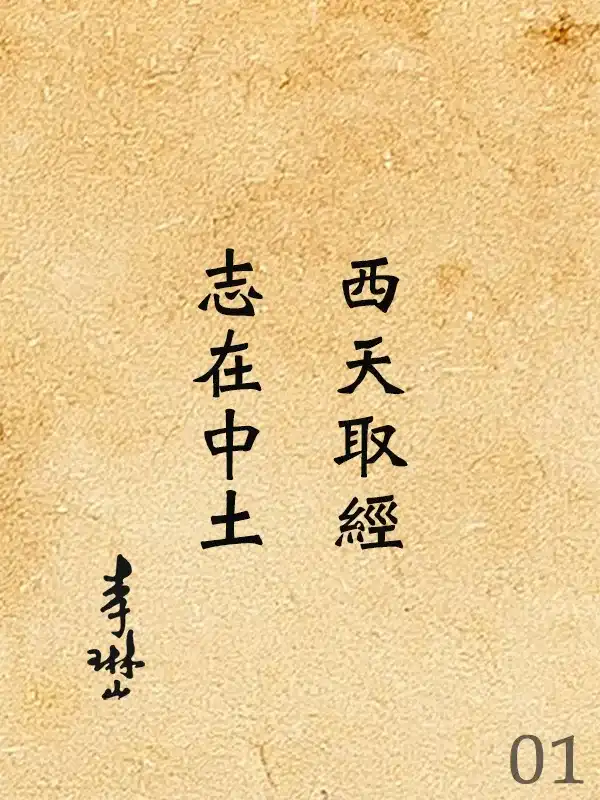 西天取經
志在中土
李琳山
01